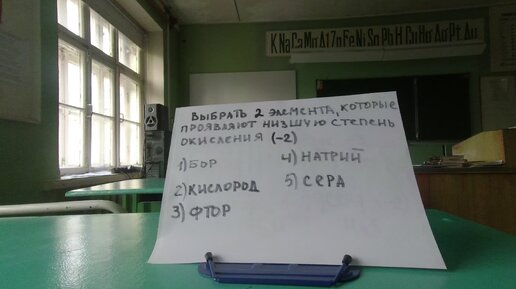 K Na Ca Mg Al Zn Fe Ni Sn Pb H Cu Hg Ag Pt Au
ВЫБРАТЬ 2 ЭЛЕМЕНТА, КОТОРЫЕ
ПРОЯВЛЯЮТ НИЗШУЮ СТЕПЕНЬ
ОКИСЛЕНИЯ (-2)
1) БОР
2) КИСЛОРОД
3) ФТОР
4) НАТРИЙ
5) СЕРА